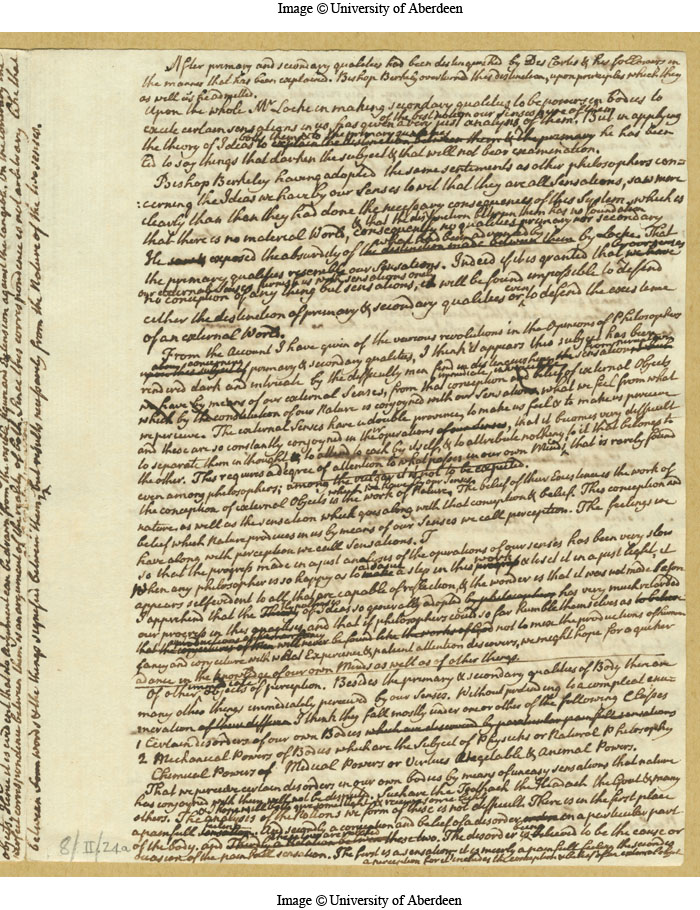 Image © University of Aberdeen
After primary and secondary qualities had been distinguished by Des Cartes & his followers in
the manner that has been explained. Bishop Berkeley overturned this distinction, upon principles which they
as well as he admitted.
Upon the whole Mr Locke in making secondary qualities to be powers in bodies to
excite certain sensations in us, has given a very just analysis of them. But in applying
of the best notion our senses give of them
the theory of Ideas to explain the distinction between them & the primary he has been
to the primary qualities
led to say things that darken the subject & that will not bear examination.
Bishop Berkeley having adopted the same sentiments as other philosophers con-
:cerning the Ideas we have by our Senses to wit that they are all Sensations, saw more
clearly than they had done the necessary consequences of this System, which is
that there is no material World, consequently no qualities primary nor secondary
& that the distinction between them has no foundation
He exposed the absurdity of the distinction made between them by Locke. That
what had been advanced by
the primary qualities resemble our Sensations. Indeed if it is granted that we have
by our senses
our external Senses furnish us with sensations only
no conception of any thing but sensations, it will be found impossible to defend
either the distinction of primary & secondary qualities or to defend the existence
even
of an external World.
From the Account I have given of the various revolutions in the Opinions of Philosophers
concerning primary & secondary qualities, I think it appears this subject has been
rendered dark and intricate by the difficulty men find in distinguishing the sensations
we have by means of our external Senses, from that conception and belief of external Objects
which by the constitution of our Nature is conjoyned with our Sensations, what we feel from what
we perceive. The external Senses have a double province, to make us feel & to make us perceive
and these are so constantly conjoyned in the operations of our senses, that it becomes very difficult
to separate them in thought & to attend to each by itself & to attribute nothing to it that belongs to
the other. This requires a degree of attention to what passes in our own Mind, that is rarely found
even among philosophers; among the vulgar it is not to be expected.
the conception of external Objects is the work of Nature, The belief of their Existence is the work of
nature as well as the sensation which goes along with that conception & belief. This conception and
belief which Nature produces in us by means of our Senses we call perception. The feelings we
have along with perception we call Sensations. T
So that the progress made in a just analysis of the operations of our senses has been very slow
When any philosopher is so happy as to make a step in this progress & to set it in a just light, it
work
appears selfevident to all that are capable of reflection, & the wonder is that it was not made before
I apprehend that the of Ideas so generally adopted by philosophers has very much retarded
our progress in this analysis, and that if philosophers could so far humble themselves as to
that the conjectures of men will never be found like the works of God not to mix the productions of human
fancy and conjecture with what Experience & patient attention discovers, we might hope for a quicker
advance in the knowledge of our own Minds as well as of other things.
Of other Objects of perception. Besides the primary & secondary qualities of Body there are
immediate
many other things immediately perceived by our Senses. Without pretending to a compleat enu-
meration of these I think they fall mostly under one or other of the following Classes
1 Certain disorders of our own Bodies which are discovered by particular painfull sensations
2 Mechanical Powers of Bodies which are the Subject of Physicks or Natural Philosophy
Chemical Powers of Medical Powers or Virtues Vegetable & Animal Powers.
That we perceive certain disorders in our own bodies by means of uneasy sensations that nature
has conjoyned with them will not be disputed. Such are the Toothach the Headach the Gout & many
others. The analysis of the Notions we form of these is not difficult. There is in the first place
a painfull sensation. And secondly a conception and belief of a disorder in a particular part
of the body. and Thirdly a Relation between these two. The disorder is believed to be the cause or
occasion of the painfull sensation. The first is a sensation it is merely a painfull feeling the second is
a perception for it includes the conception & belief of an external object
8/II/24a
between words & the things signified between them, but results necessarily from the Nature of the two senses.
Image © University of Aberdeen